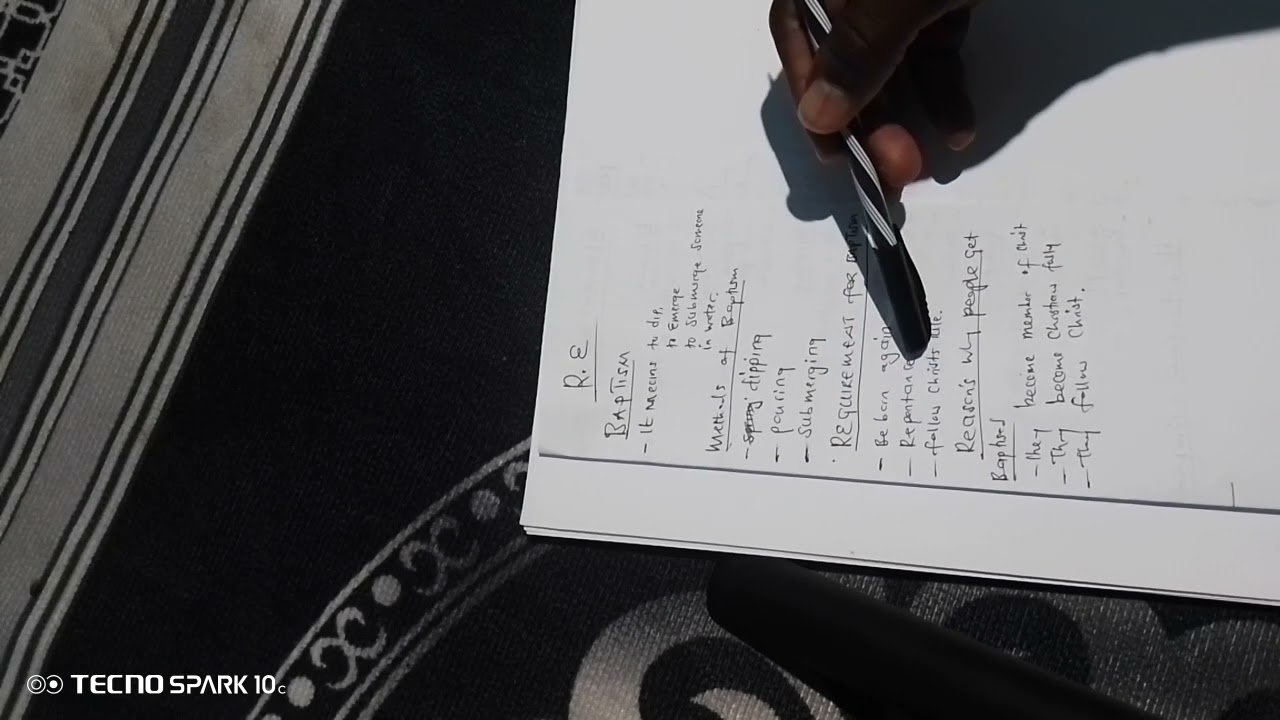 R.E
BAPTISM
- It means to dip,
to Emerge
to submerge someone
in water.
Methods of Baptism
- dipping
- pouring
- Submerging
REQUIREMENT FOR BAPTISM
- Be born again
- Repentance
- follow Christs rule.
Reason's why people get
Baptised
- They become member of Christ
- They become Christian fully
- They follow Christ.
TECNO SPARK 10C